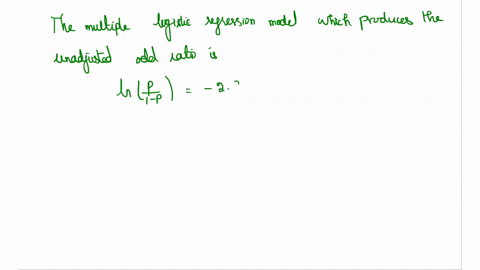 The multiple logistic regression model which produces the
unadjusted odd ratio is
ln(p/1-p) = -2.